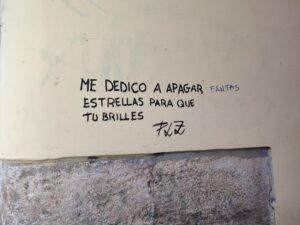 ME DEDICO A APAGAR FANTAS
ESTRELLAS PARA QUE
TÚ BRILLES